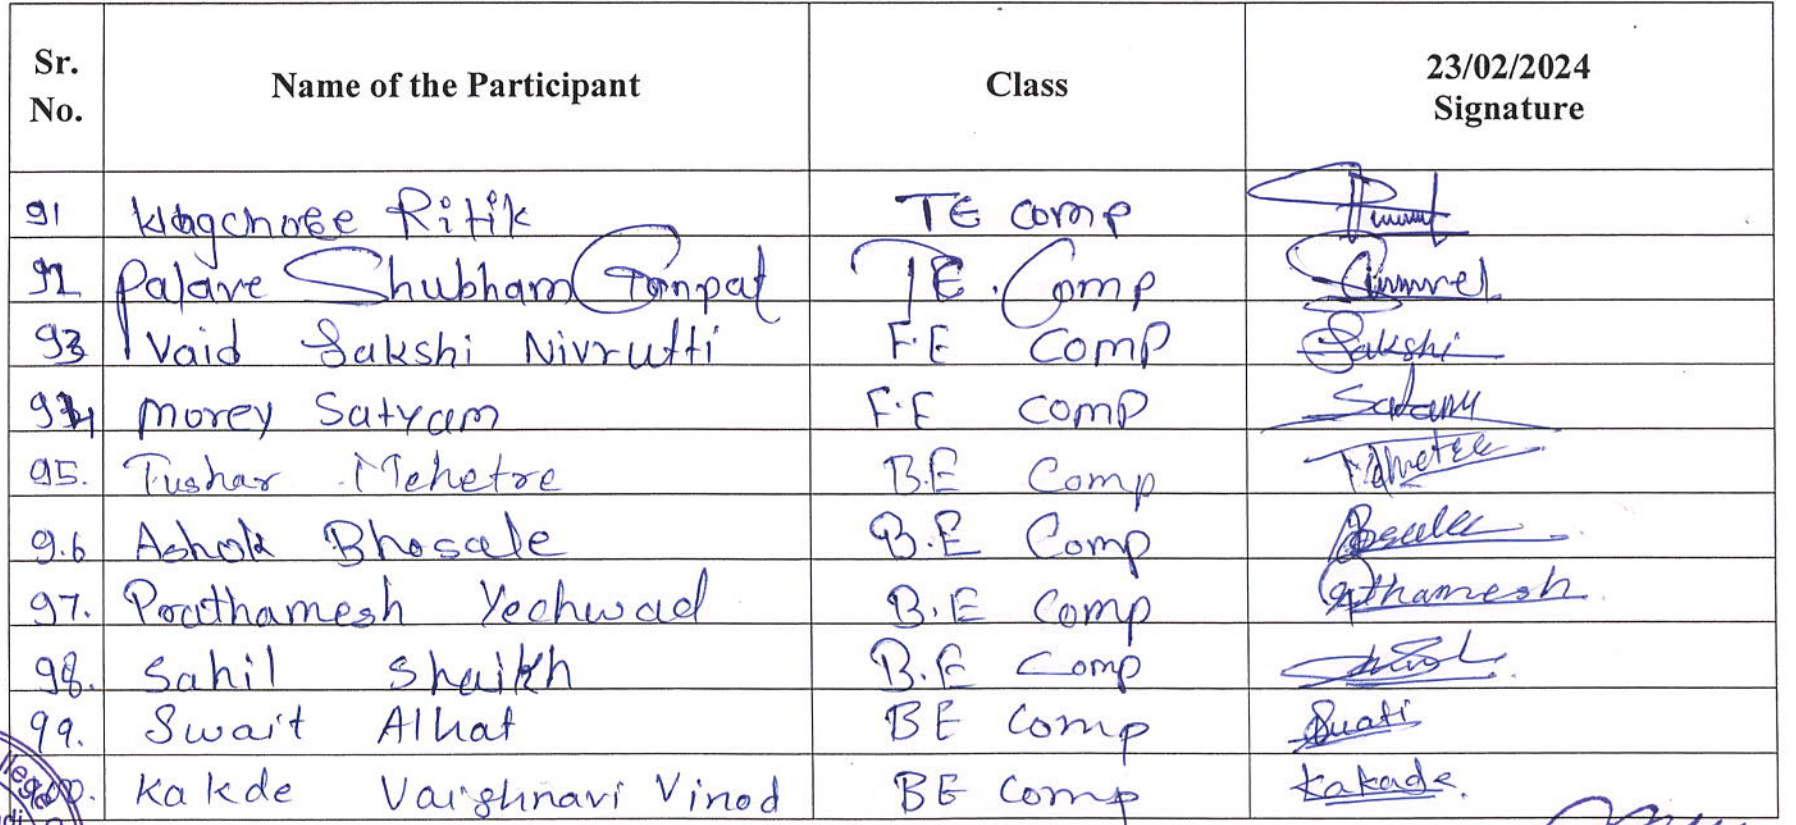 Sr. No. Name of the Participant Class 23/02/2024 Signature
91 Ritik TE comp
92 Palave Shubham Ganpat T.E. Comp
93 Vaid Sakshi Nivrutti F.E comp Sakshi
94 Morey Satyam F.E comp
95. Tushar Mehetre B.E Comp
9.6 Ashok Bhosale B.E Comp
97. Prathamesh Yechwad B.E Comp Prathamesh
98. Sahil Shaikh B.E Comp
99. Swait Alhat BE Comp Swati
100. Kakde Vaishnavi Vinod BE Comp Kakade.